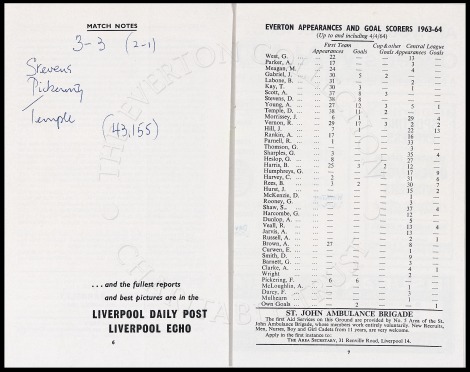 MATCH NOTES
3-3 (2-1)
Stevens
Pickering
Temple
(43,155)
...and the fullest reports
and best pictures are in the
LIVERPOOL DAILY POST
LIVERPOOL ECHO
6
EVERTON APPEARANCES AND GOAL SCORERS 1963-64
(Up to and including 4/4/64)
First Team Cup & other Central League
Appearances Goals Goals Appearances Goals
West, G. ... 22 13
Parker, A. ... 17 3
Meagan, M. ... 24 4
Gabriel, J. ... 30 5 2
Labone, B. ... 31 2
Kay, T. ... 30 3 1
Scott, A. ... 37 8 3
Stevens, D. ... 38 8
Young, A. ... 27 12 3 5 1
Temple, D. ... 38 11 2
Morrissey, J. ... 6 1 29 4
Vernon, R. ... 29 17 3 2 2
Hill, J. ... 7 1 22 13
Rankin, A. ... 16
Parnell, R. ... 1 33
Thomson, G. ... 3
Sharples, G. ... 3 35 4
Heslop, G. ... 8 27
Harris, B. ... 25 3 2 12
Humphreys, G. ... 17 9
Harvey, C. ... 2 31 6
Rees, B. ... 3 2 30 7
Hurst, J. ... 15 2
McKenzie, D. ... 1
Rooney, G. ... 3
Shaw, S. ... 37 4
Harcombe, G. ... 12
Dunlop, A. ... 5
Veall, R. ... 13 4
Jarvis, A. ... 13
Russell, A. ... 2 1
Brown, A. ... 27 8
Curwen, E. ... 1
Smith, D. ... 9
Barnett, G. ... 3
Clarke, A. ... 4 1
Wright ... 2
Pickering, F. ... 6 6
McLoughlin, A. ... 1
Darcy, F. ... 1
Mulhearn ... 1
Own Goals ... 2 1
ST. JOHN AMBULANCE BRIGADE
The first Aid Services on this Ground are provided by No. 5 Area of the St.
John Ambulance Brigade, whose members work entirely voluntarily. New Recruits,
Men, Nurses, Boy and Girl Cadets from 11 years, are very welcome.
Apply in the first instance to:
THE AREA SECRETARY, 31 Renville Road, Liverpool 14.
7